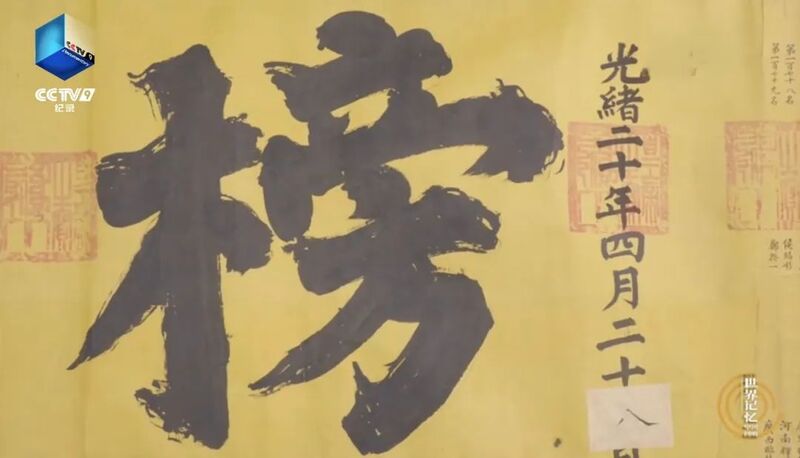 CCTV9
CCTV9
纪录
第一百七十八名
第一百七十九名
光緒二十年四月二十八日
榜
世界记忆
河南
廣西臨